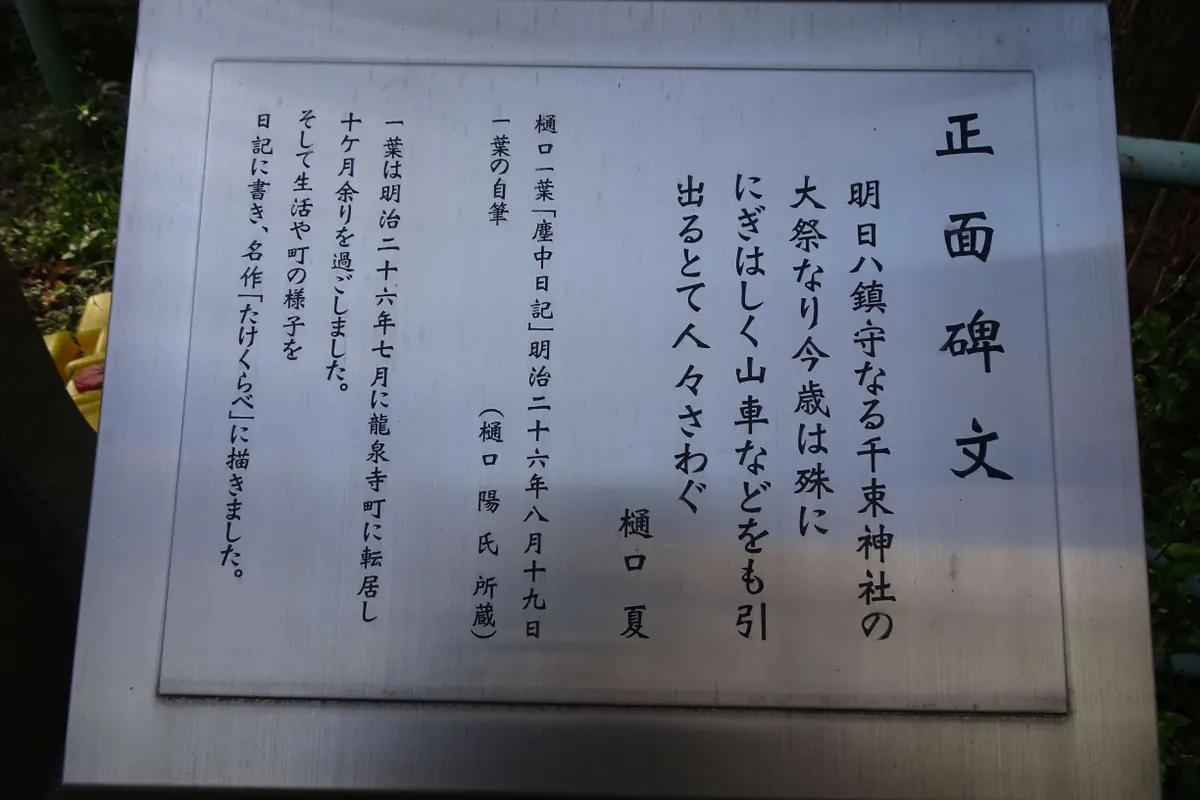 正面碑文
明日ハ鎮守なる千束神社の
大祭なり今歳は殊に
にぎはしく山車などをも引
出るとて人々さわぐ
樋口 夏
樋口一葉「塵中日記」明治二十六年八月十九日
一葉の自筆 (樋口陽氏所蔵)
一葉は明治二十六年七月に龍泉寺町に転居し
十ケ月余りを過ごしました。
そして生活や町の様子を
日記に書き、名作「たけくらべ」に描きました。